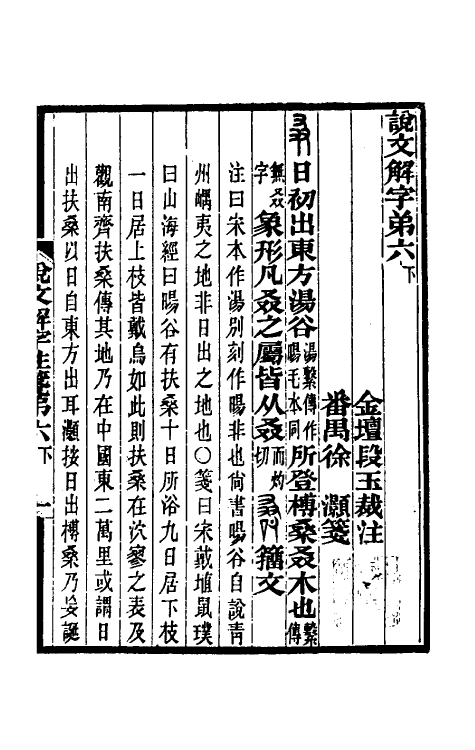 說文解字弟六下
金壇段玉裁注
番禺徐　灝箋
叒日初出東方湯谷湯繫傳作暘毛本同所登榑桑叒木也繫傳
無叒字象形凡叒之屬皆从叒而灼切籒文
注曰宋本作湯別刻作暘非也尙書暘谷自說靑
州嵎夷之地非日出之地也〇箋曰宋戴埴鼠璞
曰山海經曰暘谷有扶桑十日所浴九日居下枝
一日居上枝皆戴烏如此則扶桑在泬寥之表及
觀南齊扶桑傳其地乃在中國東二萬里或謂日
出扶桑以日自東方出耳灝按日出榑桑乃妄誕
說文解字注箋第六下　一